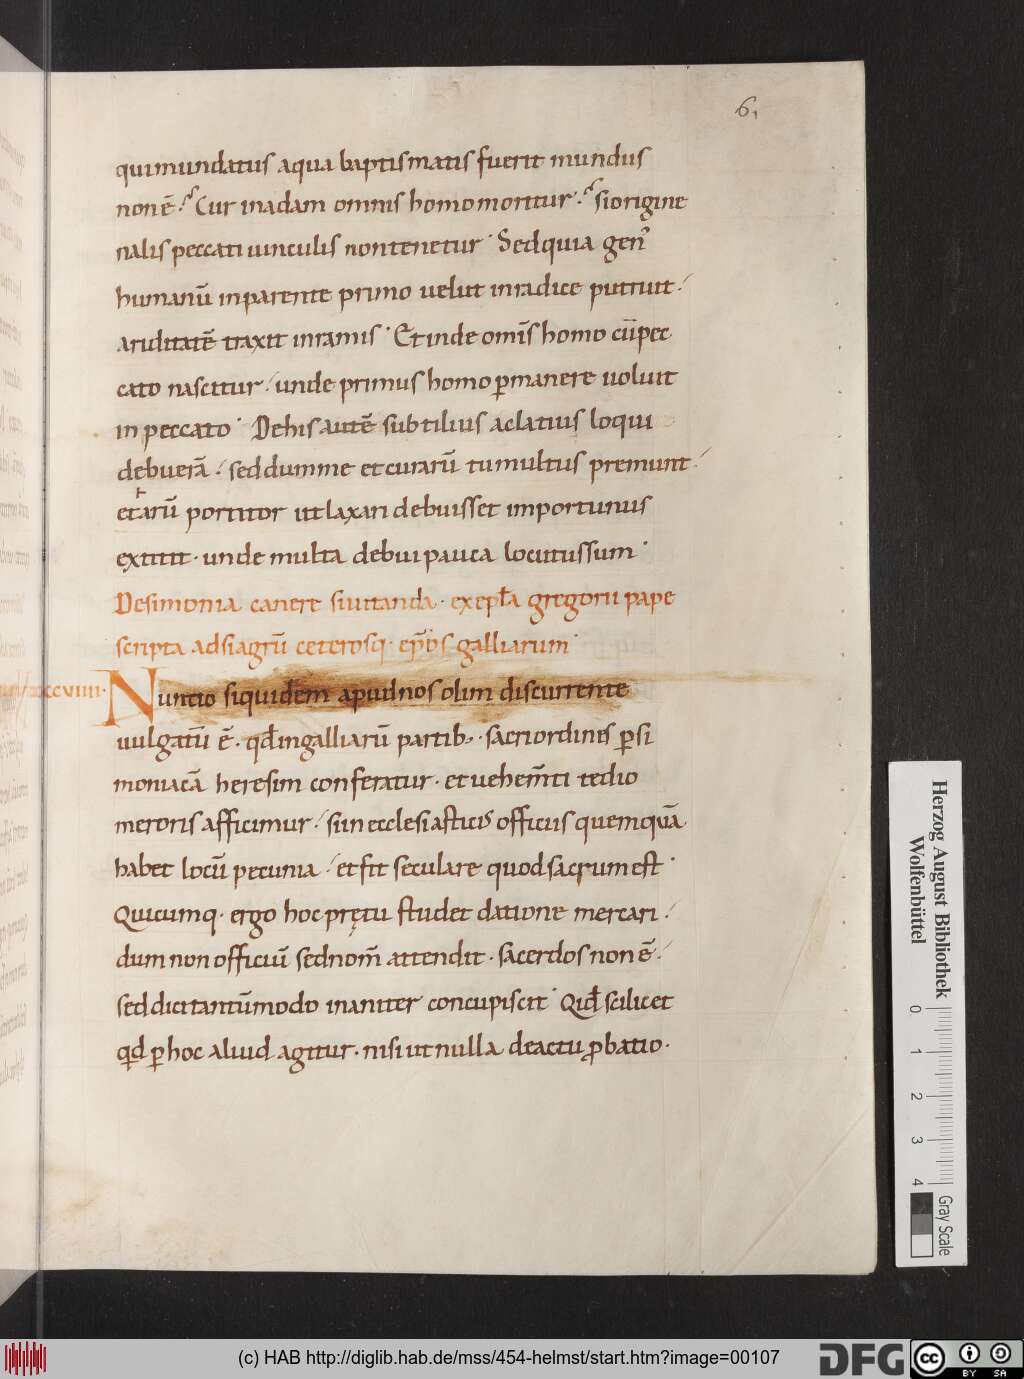 6,
qui mundatus aqua baptismatis fuerit mundus
non ē. Cur in adam omnis homo moritur. si origine
nalis peccati uinculis non tenetur. Sed quia gen᾽
humanū in parente primo uelut in radice putruit.
ariditatē traxit in ramis. Et inde om̄s homo cū pec
cato nascitur. unde primus homo ꝑmanere uoluit
in peccato. De his autē subtilius ac latius loqui
debuerā. sed dum me et curarū tumultus premunt.
et arū portitor ut laxari debuisset importunus
extitit. unde multa debui pauca locutus sum.
De simonia canere siuitanda. ex epła gregorii pape
scripta ad siagrū ceterosq. ep̄os galliarum.
Nuntio siquidem apud nos olim discurrente
uulgatū ē. qđ in galliarū partib; sacri ordines ꝑ si
moniacā heresim conferatur. et uehem̄ti tedio
meroris afficimur. si in ecclesiasticis officiis quemquā
habet locū pecunia. et fit seculare quod sacrum est.
Quicumq. ergo hoc pretu studet datione mercari.
dum non officiū sed nom̄ attendit. sacerdos non ē.
sed dici tantūmodo inaniter concupiscit. Qid̄ scilicet
qđ ꝑ hoc aliud agitur. nisi ut nulla de actu ꝓbatio.
Herzog August Bibliothek
Wolfenbüttel
0 1 2 3 4
Gray Scale
(c) HAB http://diglib.hab.de/mss/454-helmst/start.htm?image=00107
DFG
cc BY SA